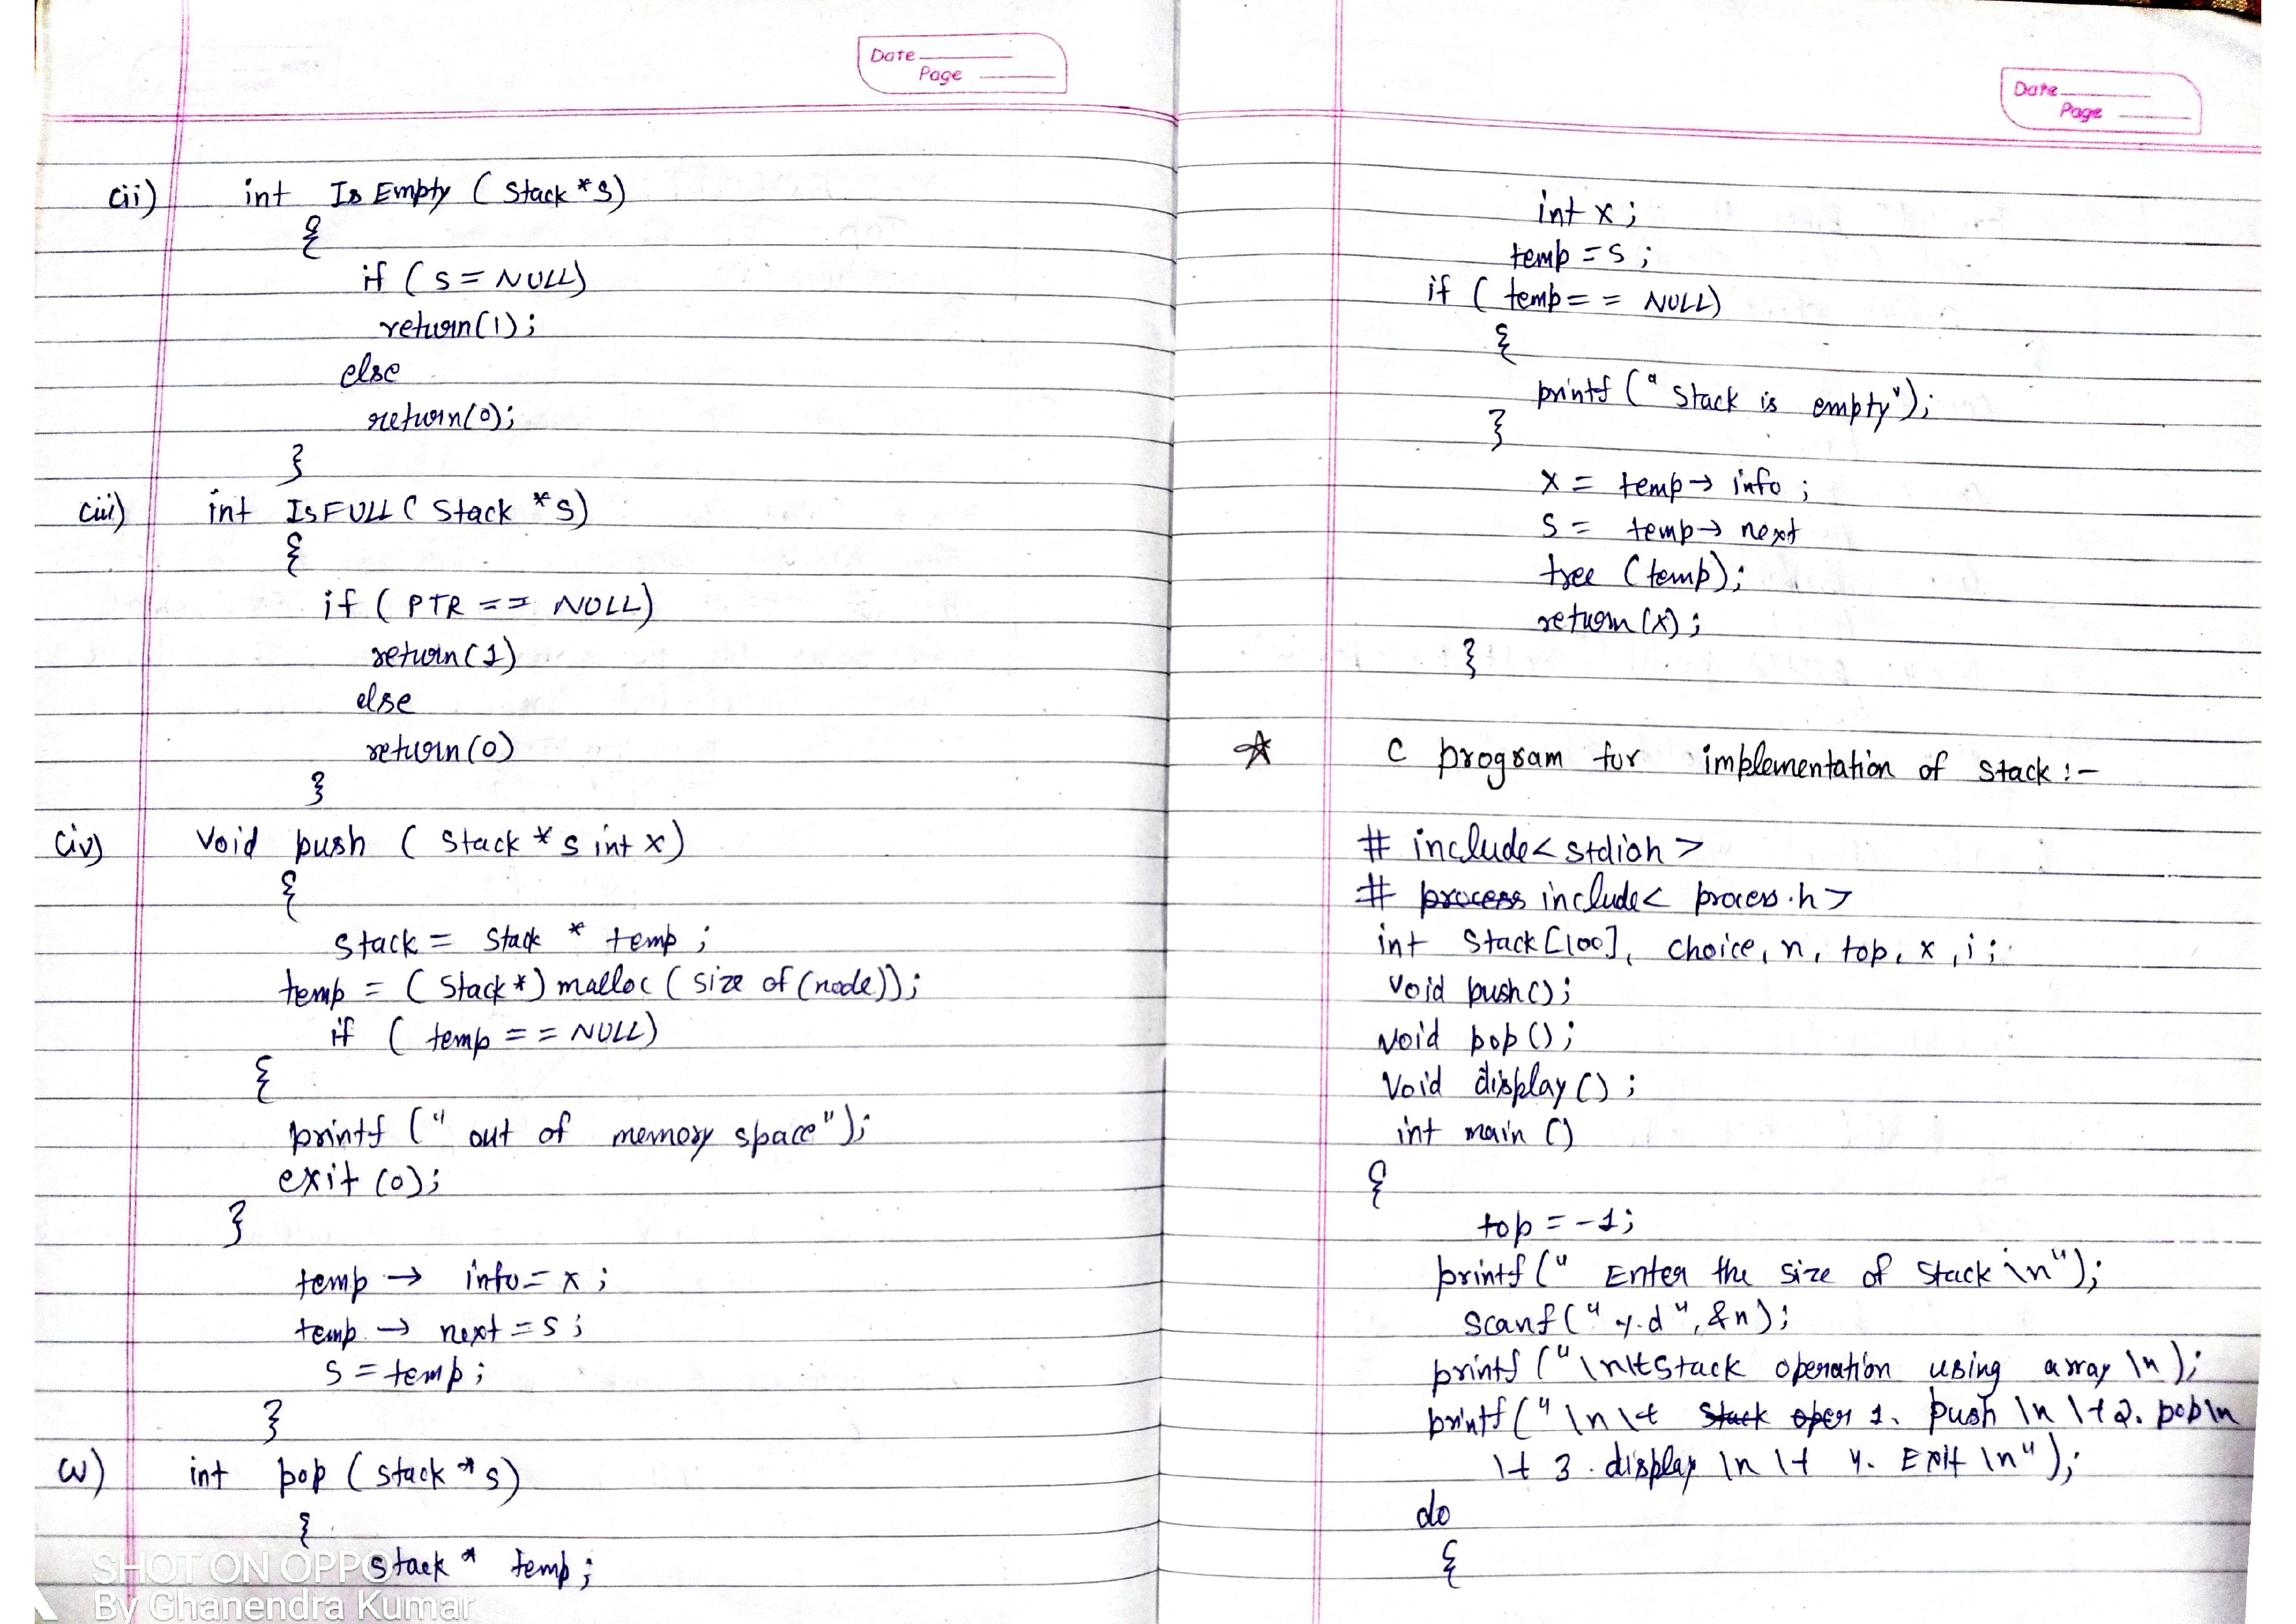 Date
Page
(ii) int IsEmpty ( Stack *S)
{
if ( s = NULL)
return(1);
else
return(0);
}
(iii) int IsFULL ( Stack *S)
{
if ( PTR == NULL)
return(1)
else
return(0)
}
(iv) Void push ( Stack * s int x)
{
stack = stack * temp ;
temp = ( Stack*) malloc ( size of (node));
if ( temp == NULL)
{
printf (" out of memory space");
exit (0);
}
temp → info = x ;
temp → next = s ;
S = temp ;
}
(v) int pop ( stack * s)
{
stack * temp ;
SHOT ON OPPO
By Ghanendra Kumar
Date
Page
int x ;
temp = s ;
if ( temp == NULL)
{
printf (" Stack is empty");
}
x = temp → info ;
S = temp → next
free (temp);
return (x) ;
}
☆ C program for implementation of stack :-
# include< stdioh >
# process include< process.h>
int Stack [100], choice, n, top, x , i ;
Void push();
Void pop ();
Void display () ;
int main ()
{
top = -1;
printf (" Enter the size of Stack \n");
scanf ("%d", &n);
printf ("\n\t Stack operation using array \n );
printf (" \n \t Stack oper 1. push \n \t 2. pop \n
\t 3. display \n \t 4. Exit \n");
do
{